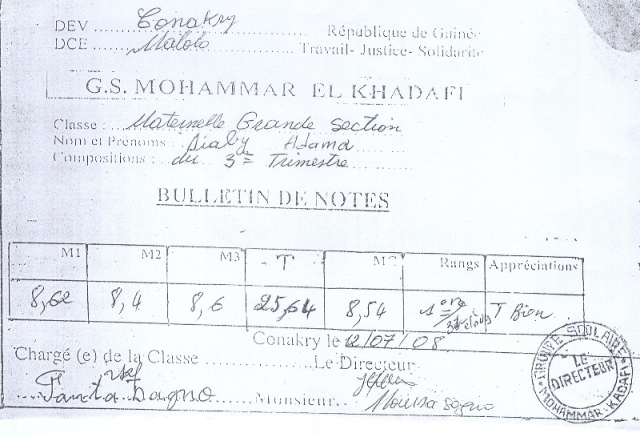 DEV Conakry République de Guinée
DCE Matoto Travail- Justice- Solidarité
G.S. MOHAMMAR EL KHADAFI
Classe : Maternelle Grande Section
Nom et Prénoms : Diaby Adama
Compositions : du 3è Trimestre
BULLETIN DE NOTES
M1 M2 M3 T Rangs Appréciations
8,62 8,4 8,6 25,64 8,54 1 ere T Bien
Conakry le 12/07/08
Chargé (e) de la Classe Le Directeur
Monsieur Moussa
GROUPE SCOLAIRE
LE DIRECTEUR
MOHAMMAR-KADAFI